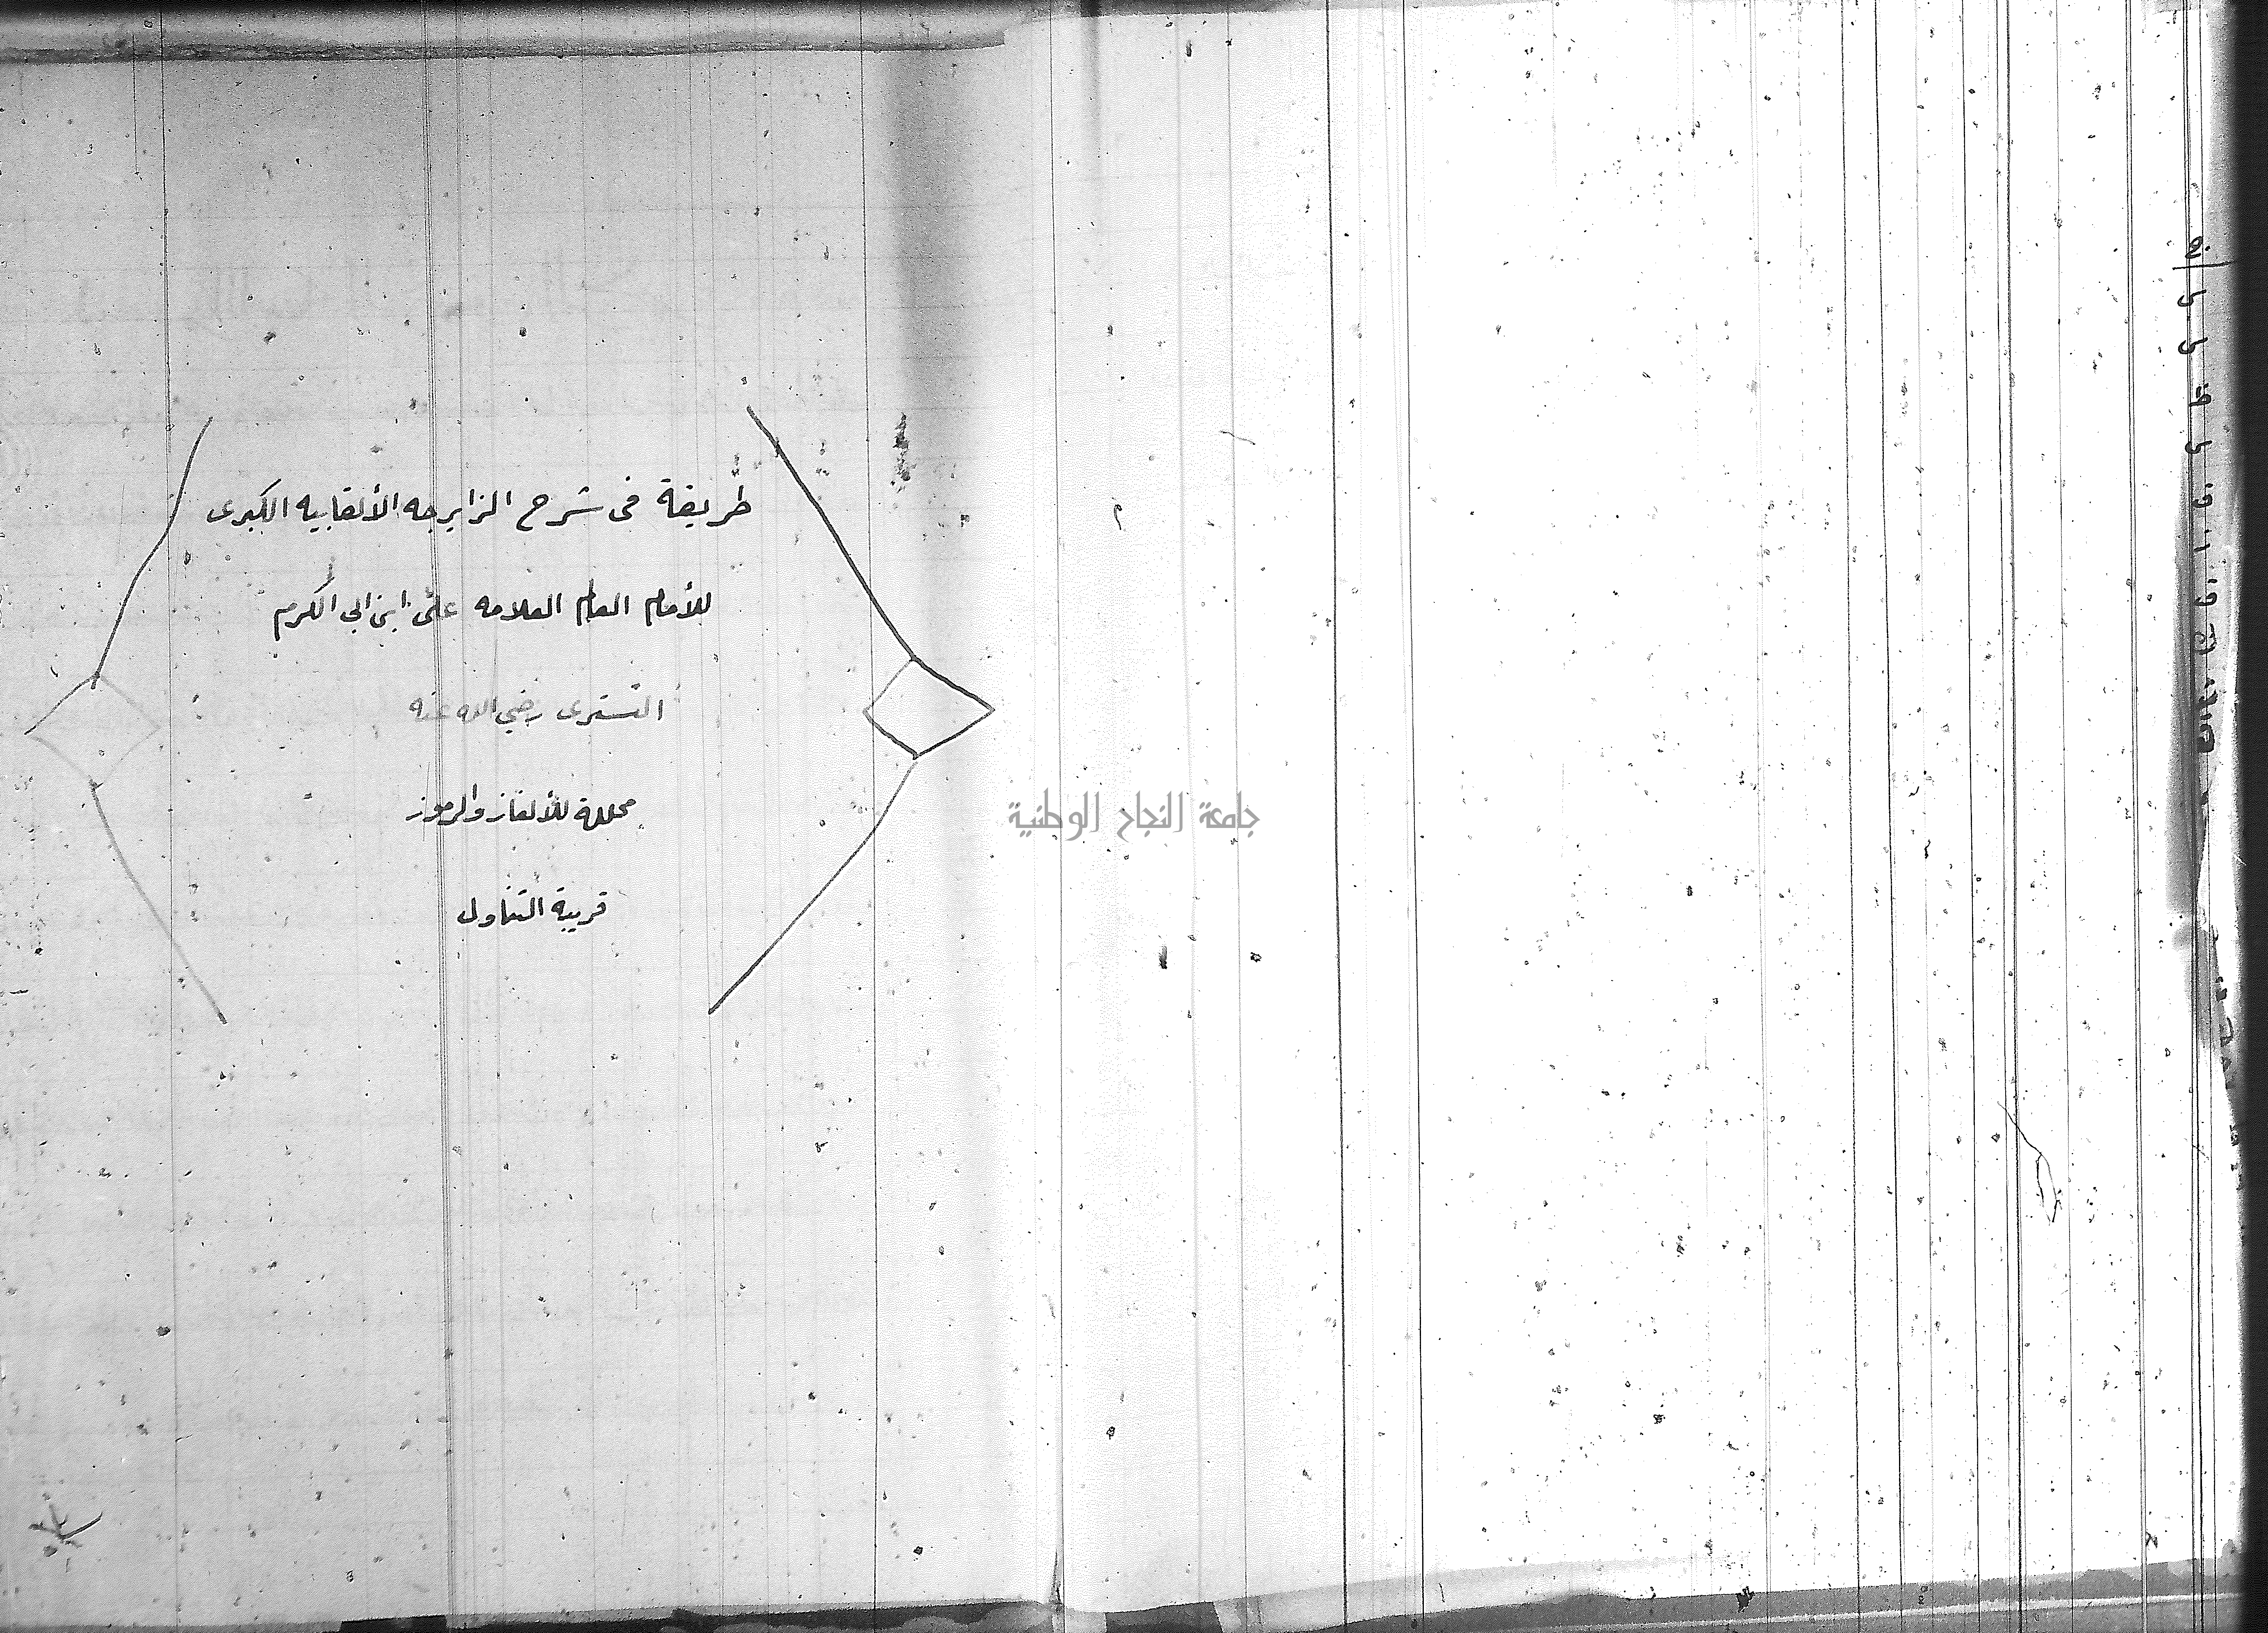 طريقة فى شرح الزايرجه الألقابيه الكبرى
للأمام العالم العلامه على ابن ابى الكرم
التسترى رضي الله عنه
محللة للألغاز والرموز
قريبة التناول
جامعة النجاح الوطنية